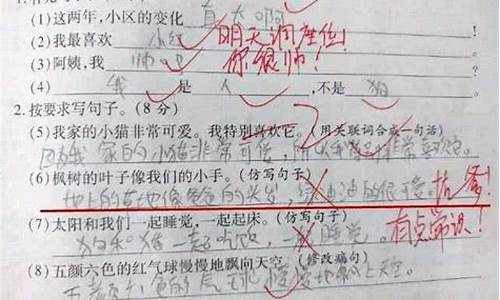 (1)这两年,小区的变化 真大啊
(2)我最喜欢 小红 明天调座位!
(3)阿姨,我 帅吧 你很帅!
(4) 我 是 人 ,不是 狗
2.按要求写句子。(8分)
(5)我家的小猫非常可爱。我特别喜欢它。(用关联词合成一句话)
因为我家的小猫非常可爱,所以我特别非常喜欢它。
(6)枫树的叶子像我们的小手。(仿写句子)
地上的草地像爸爸的头发,绿油油的很可爱。抗争!
(7)太阳和我们一起睡觉,一起起床。(仿写句子)
狗和猪一起吃饭,一起睡觉。有点常识!
(8)五颜六色的红气球慢慢地飘向天空。(修改病句)
五颜六色的气球慢慢地飘上天空。